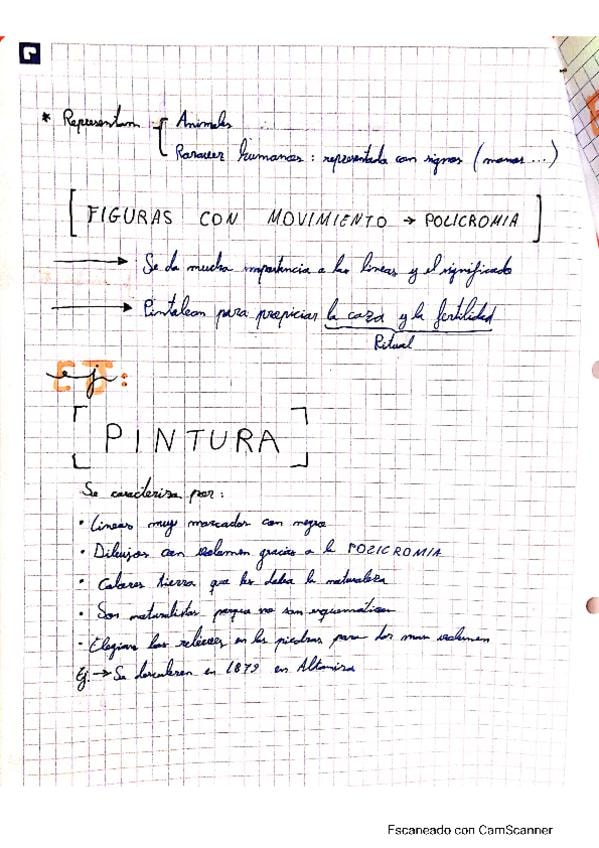 * Representan Animales
Rara vez humanas : representada con signos (manos ...)
[FIGURAS CON MOVIMIENTO → POLICROMIA]
→ Se da mucha importancia a las lineas y el significado
→ Pintaban para propiciar la caza y la fertilidad
Ritual
ej:
[PINTURA]
Se caracteriza por:
· Lineas muy marcadas con negro
· Dibujos con volumen gracias a la POLICROMIA
· Colores tierra que les daba la naturaleza
· Son naturalistas porque no son esquematicas
· Elegian los relieves en las piedras para dar mas volumen
Ej. → Se descubren en 1879 en Altamira
Escaneado con CamScanner